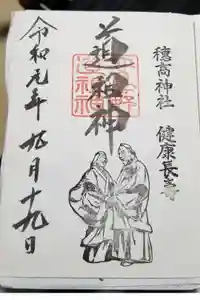 穂高神社　健康長寿
道祖神
令和元年九月十九日